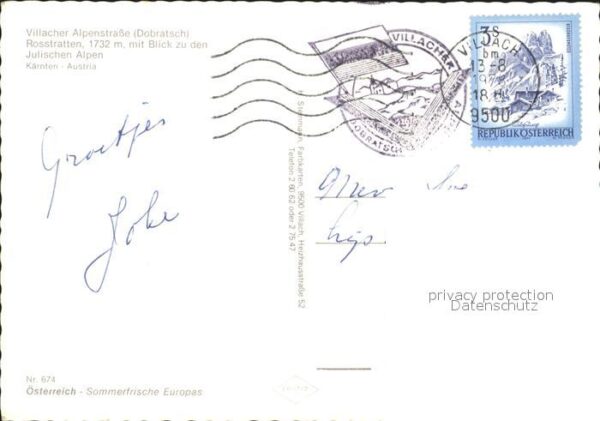 Villacher Alpenstraße (Dobratsch)
Rosstratten, 1732 m, mit Blick zu den
Julischen Alpen
Kärnten - Austria
Groetjes
Joke
H. Steinmann, Farbkarten, 9500 Villach, Heizhausstraße 52
Telefon 2 60 62 oder 2 75 47
VILLACHER
DOBRATSCH
VILLACH
bm
13.-8
18
9500
3S
REPUBLIK ÖSTERREICH
privacy protection
Datenschutz
Nr. 674
Österreich - Sommerfrische Europas